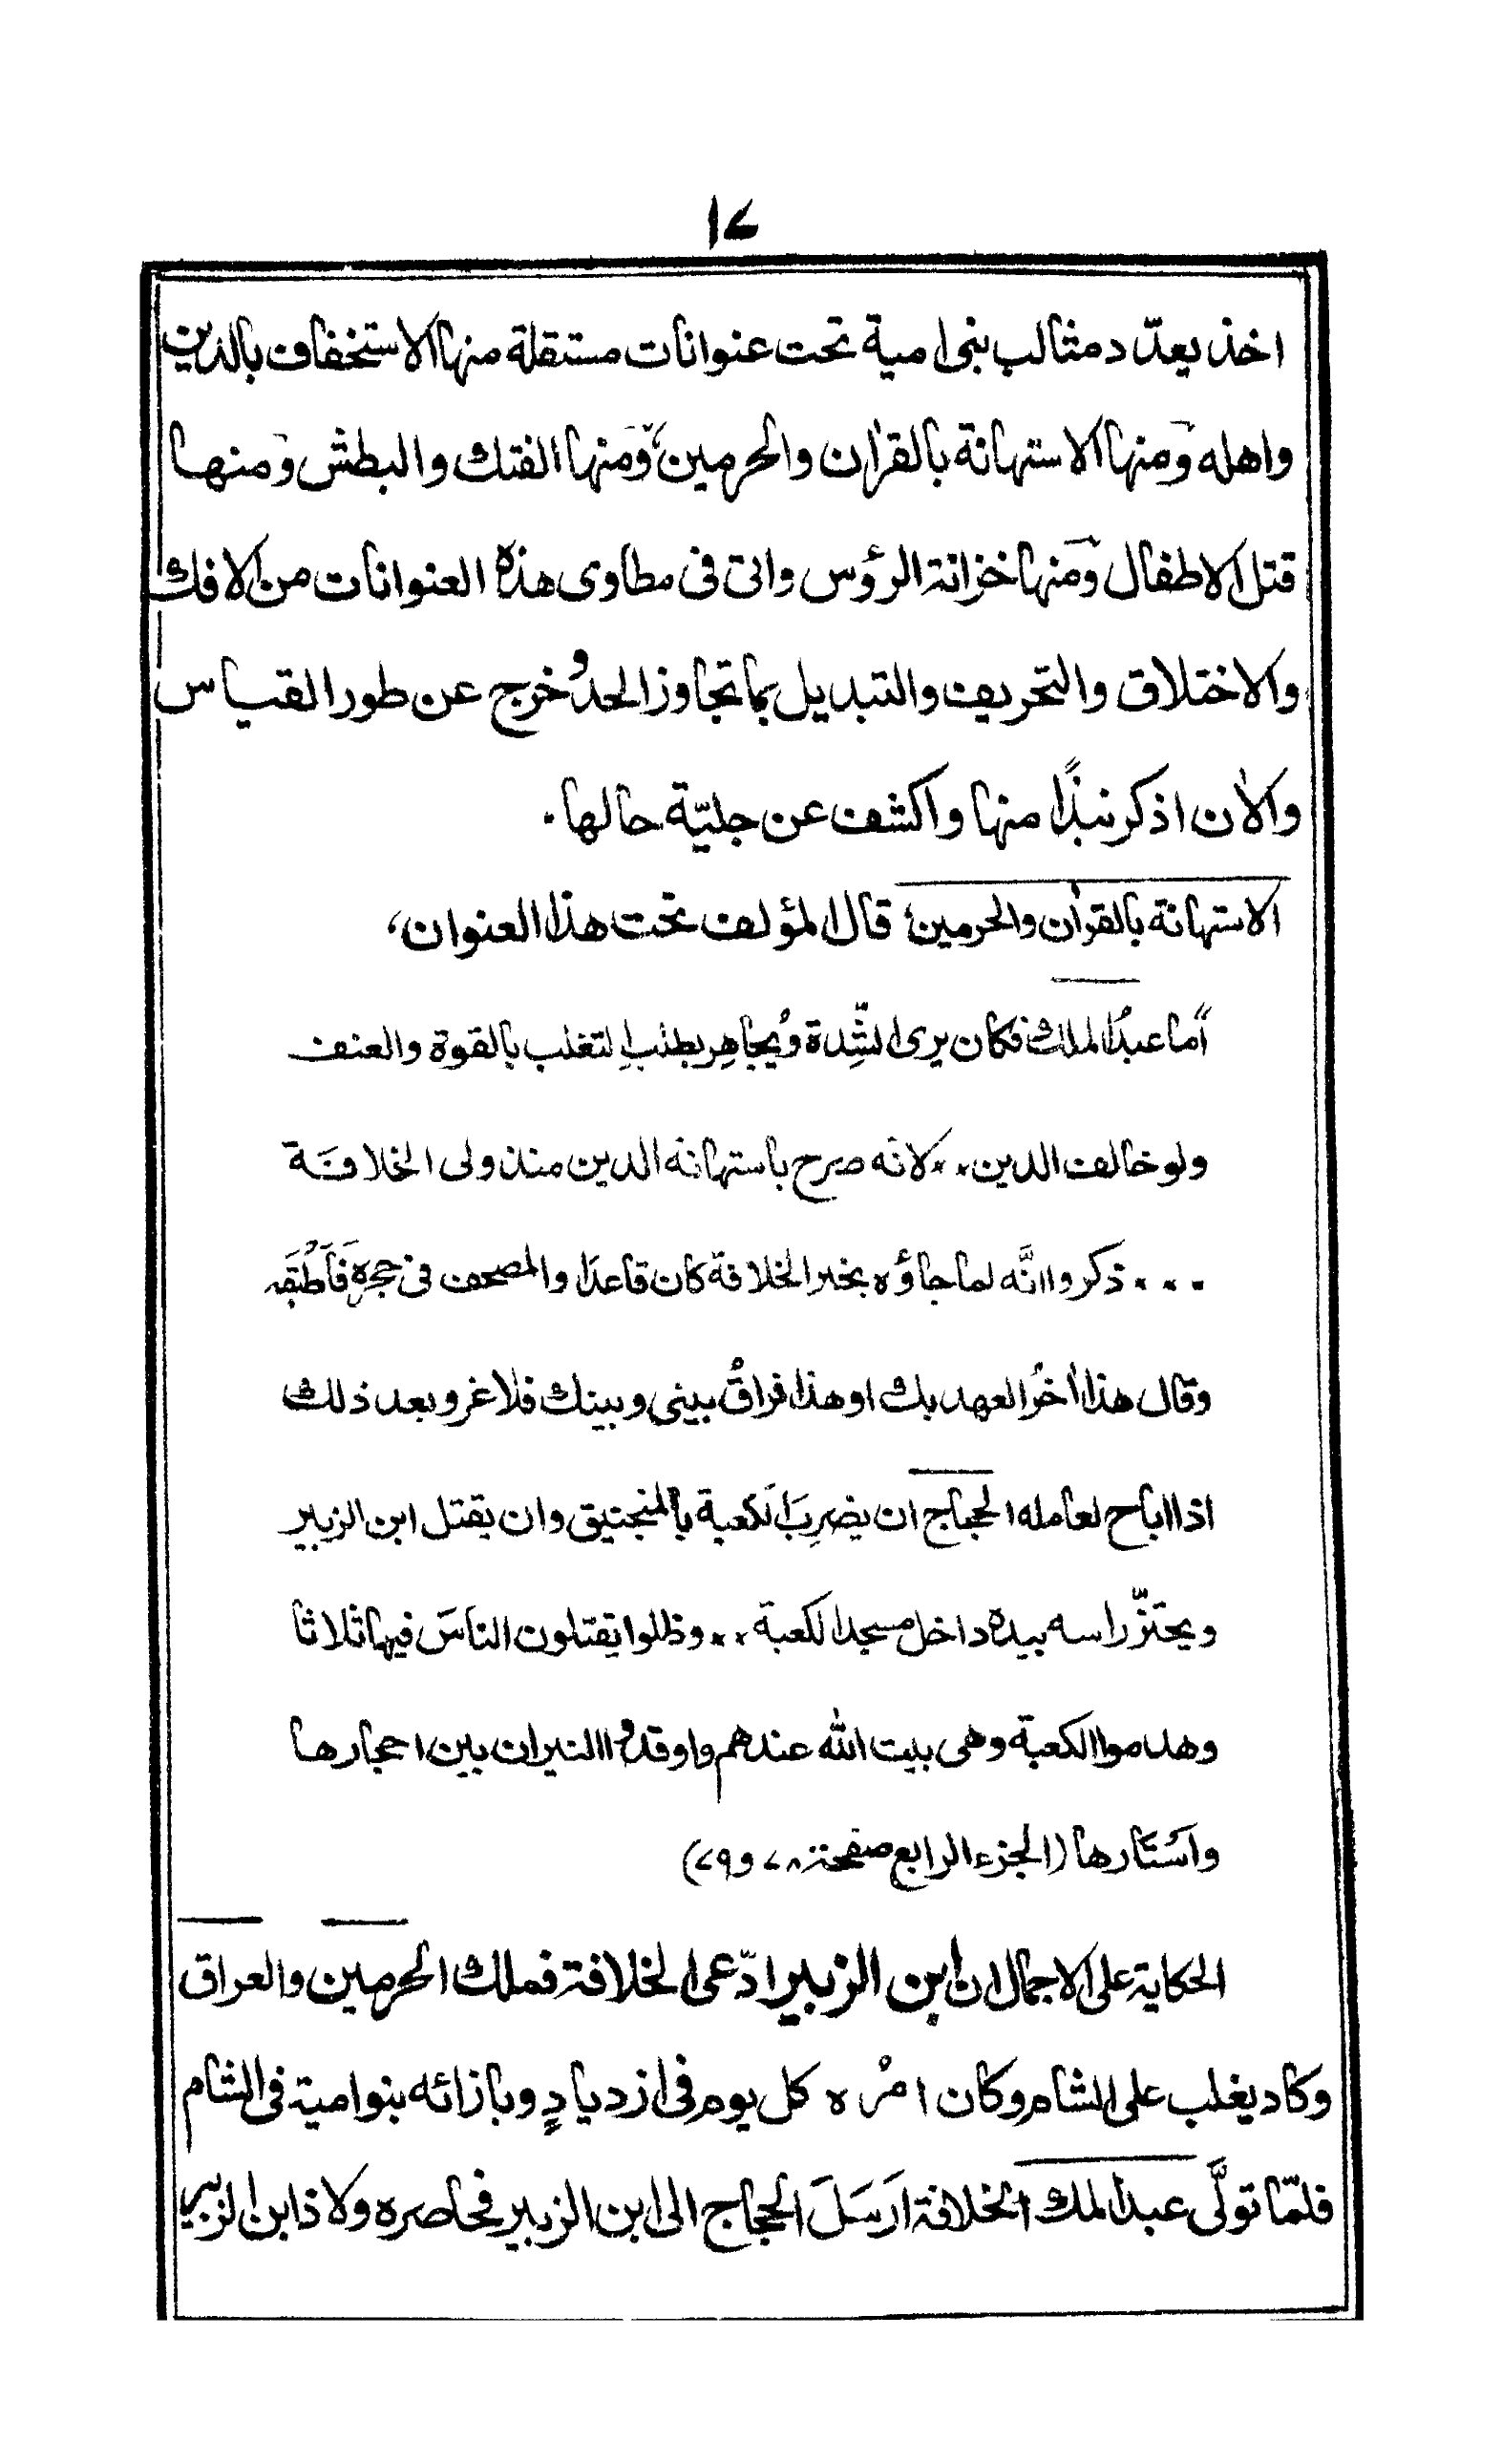 ١٧
اخذ يعدّد مثالب بنى امية تحت عنوانات مستقلة منها الاستخفاف بالدين
واهله ومنها الاستهانة بالقرٰان والحرمين، ومنها الفتك والبطش ومنها
قتل الاطفال ومنها خزانة الرؤس واتى فى مطاوى هذه العنوانات من الافك
والاختلاق والتحريف والتبديل بما تجاوز الحدُ وخرج عن طور القياس
والاٰن اذكر نبذًا منها واكشف عن جليّة حالها.
الاستهانة بالقراٰن والحرمين؛ قال المؤلف تحت هذا العنوان،
أما عبدُ الملك فكان يرى الشِّدة ويُجاهِر بطلبِ التغلب بالقوة والعنف
ولو خالف الدين ٠٠ لانه صرح باستهانة الدين منذ ولى الخلافة
٠٠٠ ذكروا انَّه لما جاؤه بخبر الخلافة كان قاعدًا والمصحف فى حجره فَأَطْبَقَه
وقال هذا اٰخرُ العهد بك او هذا فراقُ بينى وبينك فلا غرو بعد ذلك
اذا اباح لعامله الحجاج ان يضرِبَ الكعبة بالمنجنيق وان يقتل ابن الزبير
ويحتزّ راسه بيده داخل مسجد الكعبة ٠٠ وظلوا يقتلون الناسَ فيها ثلاثا
وهدموا الكعبة وهى بيت الله عندهم واوقدُوا النيران بين احجارها
واَسْتَارها (الجزء الرابع صفحة ٧٨ و ٧٩)
الحكاية على الاجمال ان ابن الزبير ادّعى الخلافة فملك الحرمين والعراق
وكاد يغلب على الشام وكان امْره كل يوم فى ازديادٍ وبازائه بنو امية فى الشام
فلمّا تولَّى عبد الملك الخلافة ارَسَلَ الحجاج الى ابن الزبير فحاصره ولاذ ابن الزبير